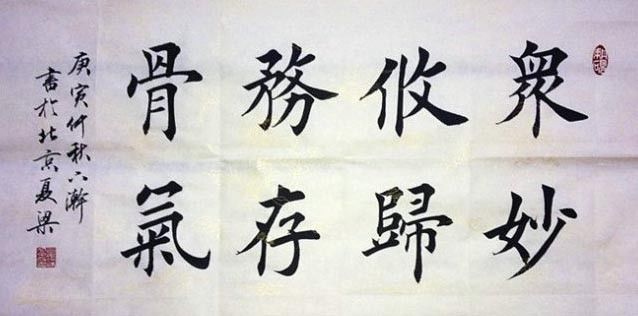 衆妙
攸歸
務存
骨氣
庚寅仲秋下澣
書於北京夏梁